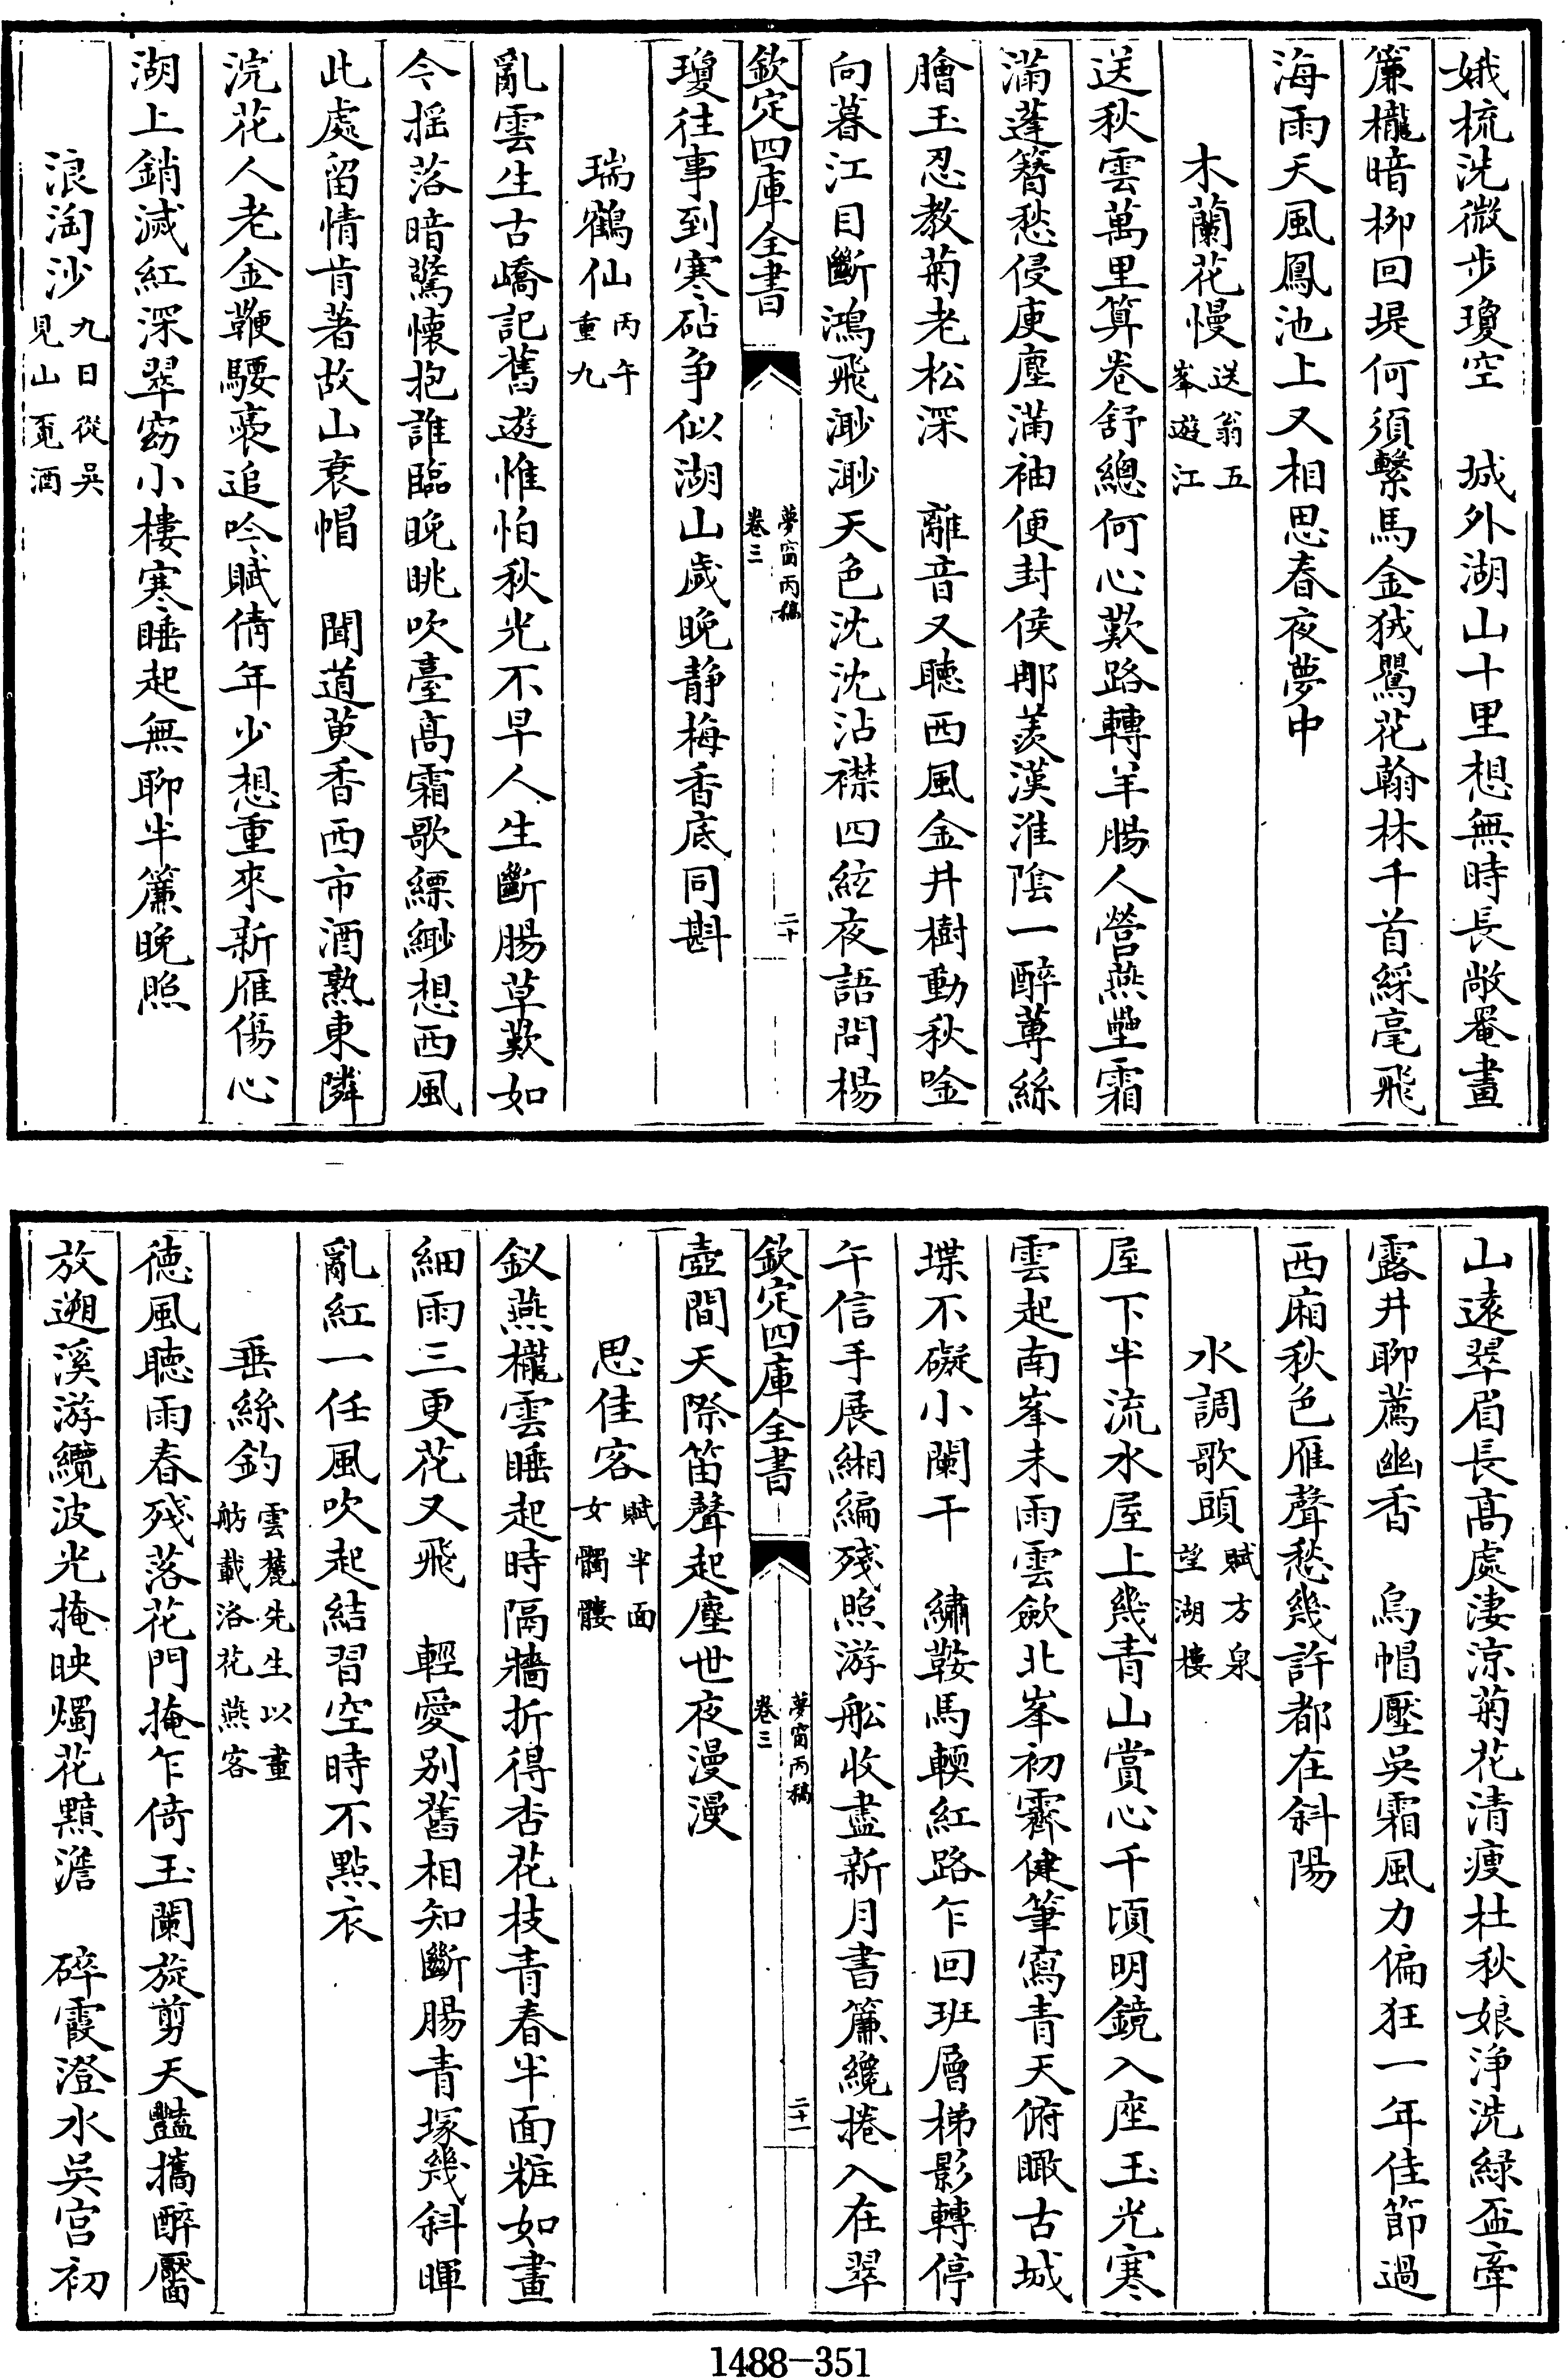 娥梳洗微步瓊空　城外湖山十里想無時長敞罨畫
簾櫳暗柳回堤何須繫馬金狨鸎花翰林千首綵毫飛
海雨天風鳳池上又相思春夜夢中
木蘭花慢送翁五峯遊江
送秋雲萬里算卷舒總何心歎路轉羊腸人營燕壘霜
滿蓬簪愁侵庾塵滿袖便封侯那羨漢淮陰一醉蓴絲
膾玉忍教菊老松深　離音又聽西風金井樹動秋唫
向暮江目斷鴻飛渺渺天色沈沈沾襟四絃夜語問楊
欽定四庫全書
夢窗丙稿
卷三
二十
瓊往事到寒砧争似湖山歲晚靜梅香底同斟
瑞鶴仙丙午重九
亂雲生古嶠記舊遊惟怕秋光不早人生斷腸草歎如
今摇落暗驚懷抱誰臨晚眺吹臺高霜歌縹緲想西風
此處留情肯著故山衰帽　聞道萸香西市酒熟東隣
浣花人老金鞭騕褭追吟賦倩年少想重來新雁傷心
湖上銷減紅深翠窈小樓寒睡起無聊半簾晚照
浪淘沙九日從吳見山覔酒
山遠翠眉長高處淒涼菊花清瘦杜秋娘淨洗緑盃牽
露井聊薦幽香　烏帽壓吳霜風力偏狂一年佳節過
西廂秋色雁聲愁幾許都在斜陽
水調歌頭賦方泉望湖樓
屋下半流水屋上幾青山賞心千頃明鏡入座玉光寒
雲起南峯未雨雲斂北峯初霽健筆寫青天俯瞰古城
堞不礙小闌干　繡鞍馬輭紅路乍回班層梯影轉停
午信手展緗編殘照游舩收盡新月書簾纔捲入在翠
欽定四庫全書
夢窗丙稿
卷三
二十一
壺間天際笛聲起塵世夜漫漫
思佳客賦半面女髑髏
釵燕櫳雲睡起時隔牆折得杏花枝青春半面粧如畫
細雨三更花又飛　輕愛別舊相知斷腸青塚幾斜暉
亂紅一任風吹起結習空時不點衣
垂絲釣雲麓先生以畫舫載洛花燕客
德風聽雨春殘落花門掩乍倚玉闌旋剪天豔攜醉靨
放遡溪游纜波光掩映燭花黯澹　碎霞澄水吳宫初
1488-351